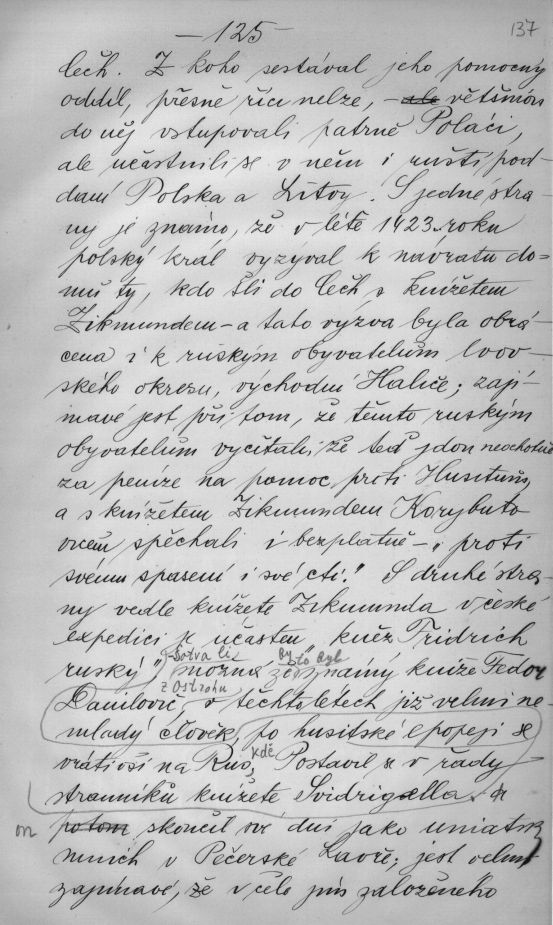 — 125 —
137
Čech. Z koho sestával jeho pomocný
oddíl, přesně říci nelze, – ale většinou
do něj vstupovali patrně Poláci,
ale učastnili se v něm i ruští pod-
daní Polska a Litvy. S jedné stra-
ny je známo, že v létě 1423. roku
polský král vyzýval k návratu do-
mů ty, kdo šli do Čech s knížetem
Zikmundem – a tato vyzva byla obrá-
cena i k ruským obyvatelům lvov-
ského okresu, východní Haliče; zají-
mavé jest při tom, že těmto ruským
obyvatelům vyčítali, že teď jdou neochotně
za peníze na pomoc proti Husitům,
a s knížetem Zikmundem Korybuto
vičem spěchali i bezplatně – „proti
svému spasení i své cti." S druhé stra-
ny vedle knížete Zikmunda v české
expedici je účasten „kněz Fridrich
ruský"
Sotva li
by to byl
možná že známý kníže Fedor
z Ostrohu
Danilovič, v těchto létech již velmi ne-
mladý člověk, po husitské epopeji se
vrátivší na Rus,
kdě
Postavil se v řady
stranníků knížete Svidrigella. a
on
potom skončil své dni jako uniatsk
mnich v Pečerské Lavře; jest velmi
zajímavé, že v čele jím založeného